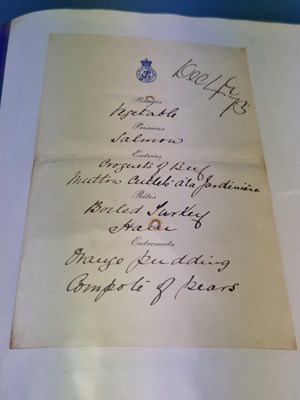 Dec 4
Potages
Vegetable
Poissons
Salmon
Entrées
Croquets of Beef
Mutton Cutlets a la Jardiniere
Rôtis
Boiled Turkey
Ham
Entremets
Orange pudding
Compote of pears